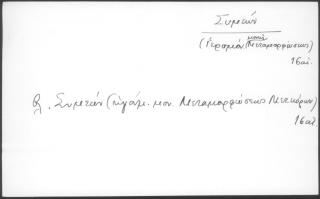 Συμεών
(Ἱερομόν. μονῆς Μεταμορφώσεως)
16 αἰ.
βλ. Συμεών (ἡγούμ. μον. Μεταμορφώσεως Μετεώρων)
16 αἰ.